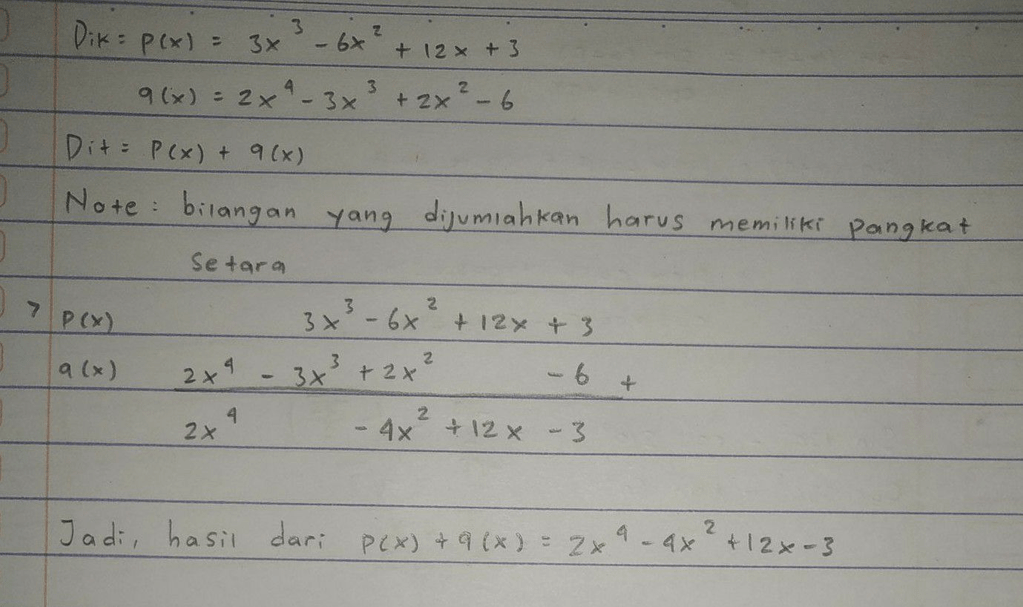 Dik = P(x) = 3x³ - 6x² + 12x + 3
q(x) = 2x⁴ - 3x³ + 2x² - 6
Dit = P(x) + q(x)
Note : bilangan yang dijumlahkan harus memiliki pangkat
setara
> P(x) 3x³ - 6x² + 12x + 3
q(x) 2x⁴ - 3x³ + 2x² - 6 +
2x⁴ - 4x² + 12x - 3
Jadi, hasil dari P(x) + q(x) = 2x⁴ - 4x² + 12x - 3